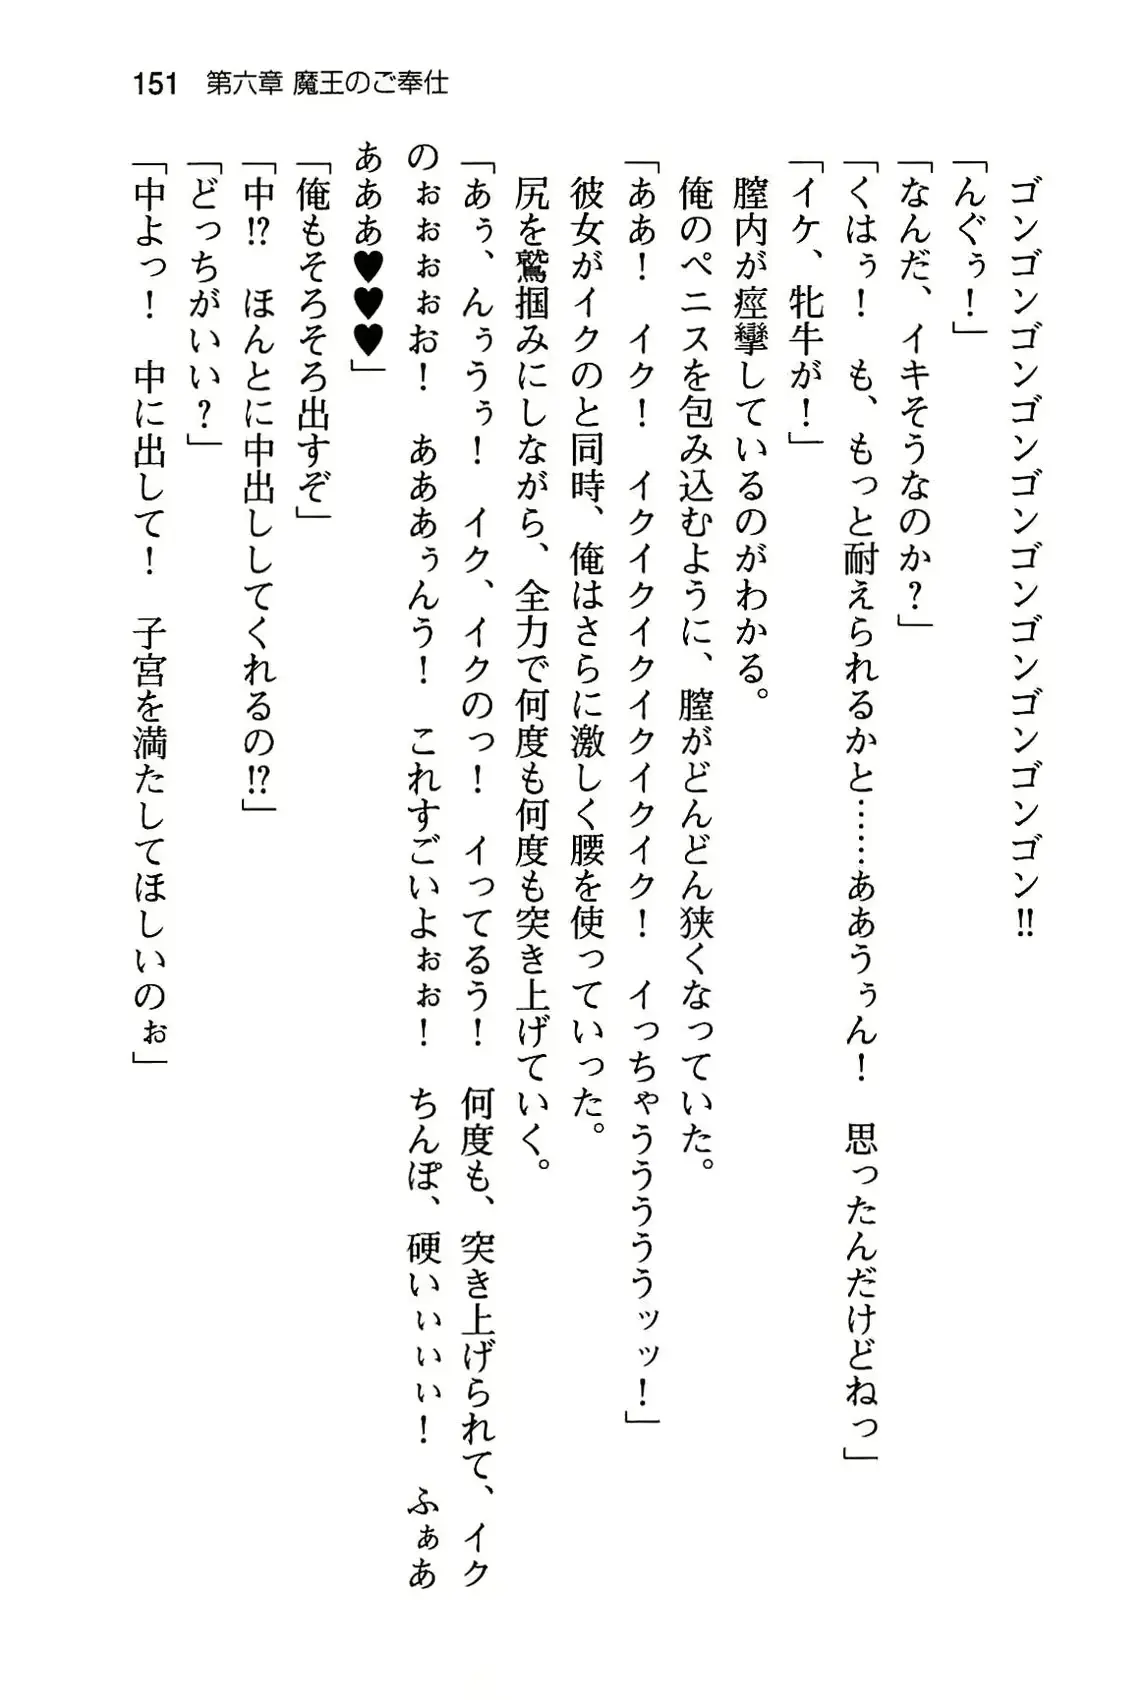 151 第六章 魔王のご奉仕
ゴンゴンゴンゴンゴンゴンゴンゴンゴンゴン!!
「んぐぅ！」
「なんだ、イキそうなのか？」
「くはぅ！　も、もっと耐えられるかと……ああうぅん！　思ったんだけどねっ」
「イケ、牝牛が！」
膣内が痙攣しているのがわかる。
俺のペニスを包み込むように、膣がどんどん狭くなっていた。
「ああ！　イク！　イクイクイクイクイクイク！　イっちゃうううううッッ！」
彼女がイクのと同時、俺はさらに激しく腰を使っていった。
尻を鷲掴みにしながら、全力で何度も何度も突き上げていく。
「あぅ、んぅうぅ！　イク、イクのっ！　イってるう！　何度も、突き上げられて、イク
のぉぉぉぉお！　あああぅんう！　これすごいよぉぉ！　ちんぽ、硬いぃぃぃ！　ふぁあ
あああ♥♥♥」
「俺もそろそろ出すぞ」
「中!?　ほんとに中出ししてくれるの!?」
「どっちがいい？」
「中よっ！　中に出して！　子宮を満たしてほしいのぉ」